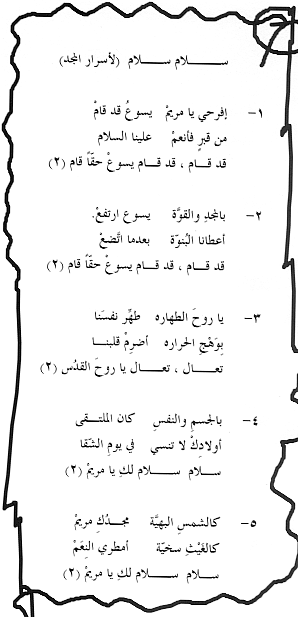 ســـــلام ســـــلام (لأسرار المجد)
١- إفرحي يا مريمْ يسوعُ قد قامْ
من قبرٍ فأنعمْ علينا السلام
قد قـــام ، قد قـــام يسوعْ حقّاً قام (٢)
٢- بالمجدِ والقوَّة يسوع ارتفعْ.
أعطانا البُنوّة بعدما اتَّضعْ
قد قـــام ، قد قـــام يسوعْ حقّاً قام (٢)
٣- يا روحَ الطهاره طهِّر نفسَنا
بِوَهْجِ الحراره أضرِمْ قلبنـــا
تعـــال ، تعـــال يا روحَ القدُس (٢)
٤- بالجسمِ والنفسِ كان الملتـــقى
أولادِكْ لا تنسي في يومِ الشَقا
سلام ســـلام لكِ يا مريمْ (٢)
٥- كالشمسِ البهيَّة مجـــدُكِ مريمْ
كالغَيْثِ سخيّة أمطري النِعَمْ
سلام ســـلام لكِ يا مريمْ (٢)